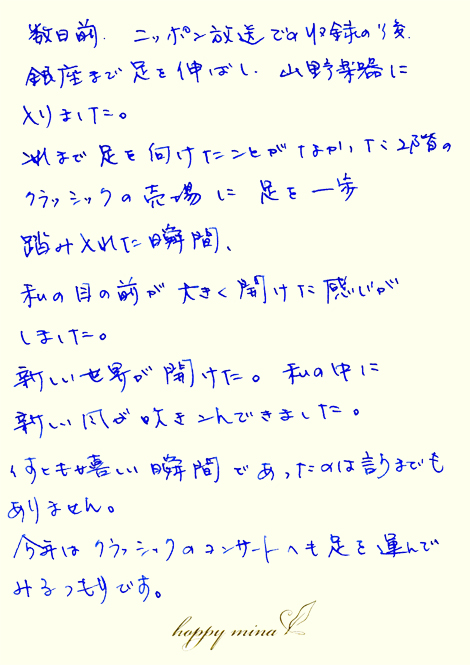 数日前、ニッポン放送での収録の後、
銀座まで足を伸ばし、山野楽器に
入りました。
これまで足を向けたことがなかった2階の
クラッシックの売場に足を一歩
踏み入れた瞬間、
私の目の前が大きく開けた感じが
しました。
新しい世界が開けた。私の中に
新しい風が吹きこんできました。
何とも嬉しい瞬間であったのは言うまでも
ありません。
今年はクラッシックのコンサートへも足を運んで
みるつもりです。
happy mina